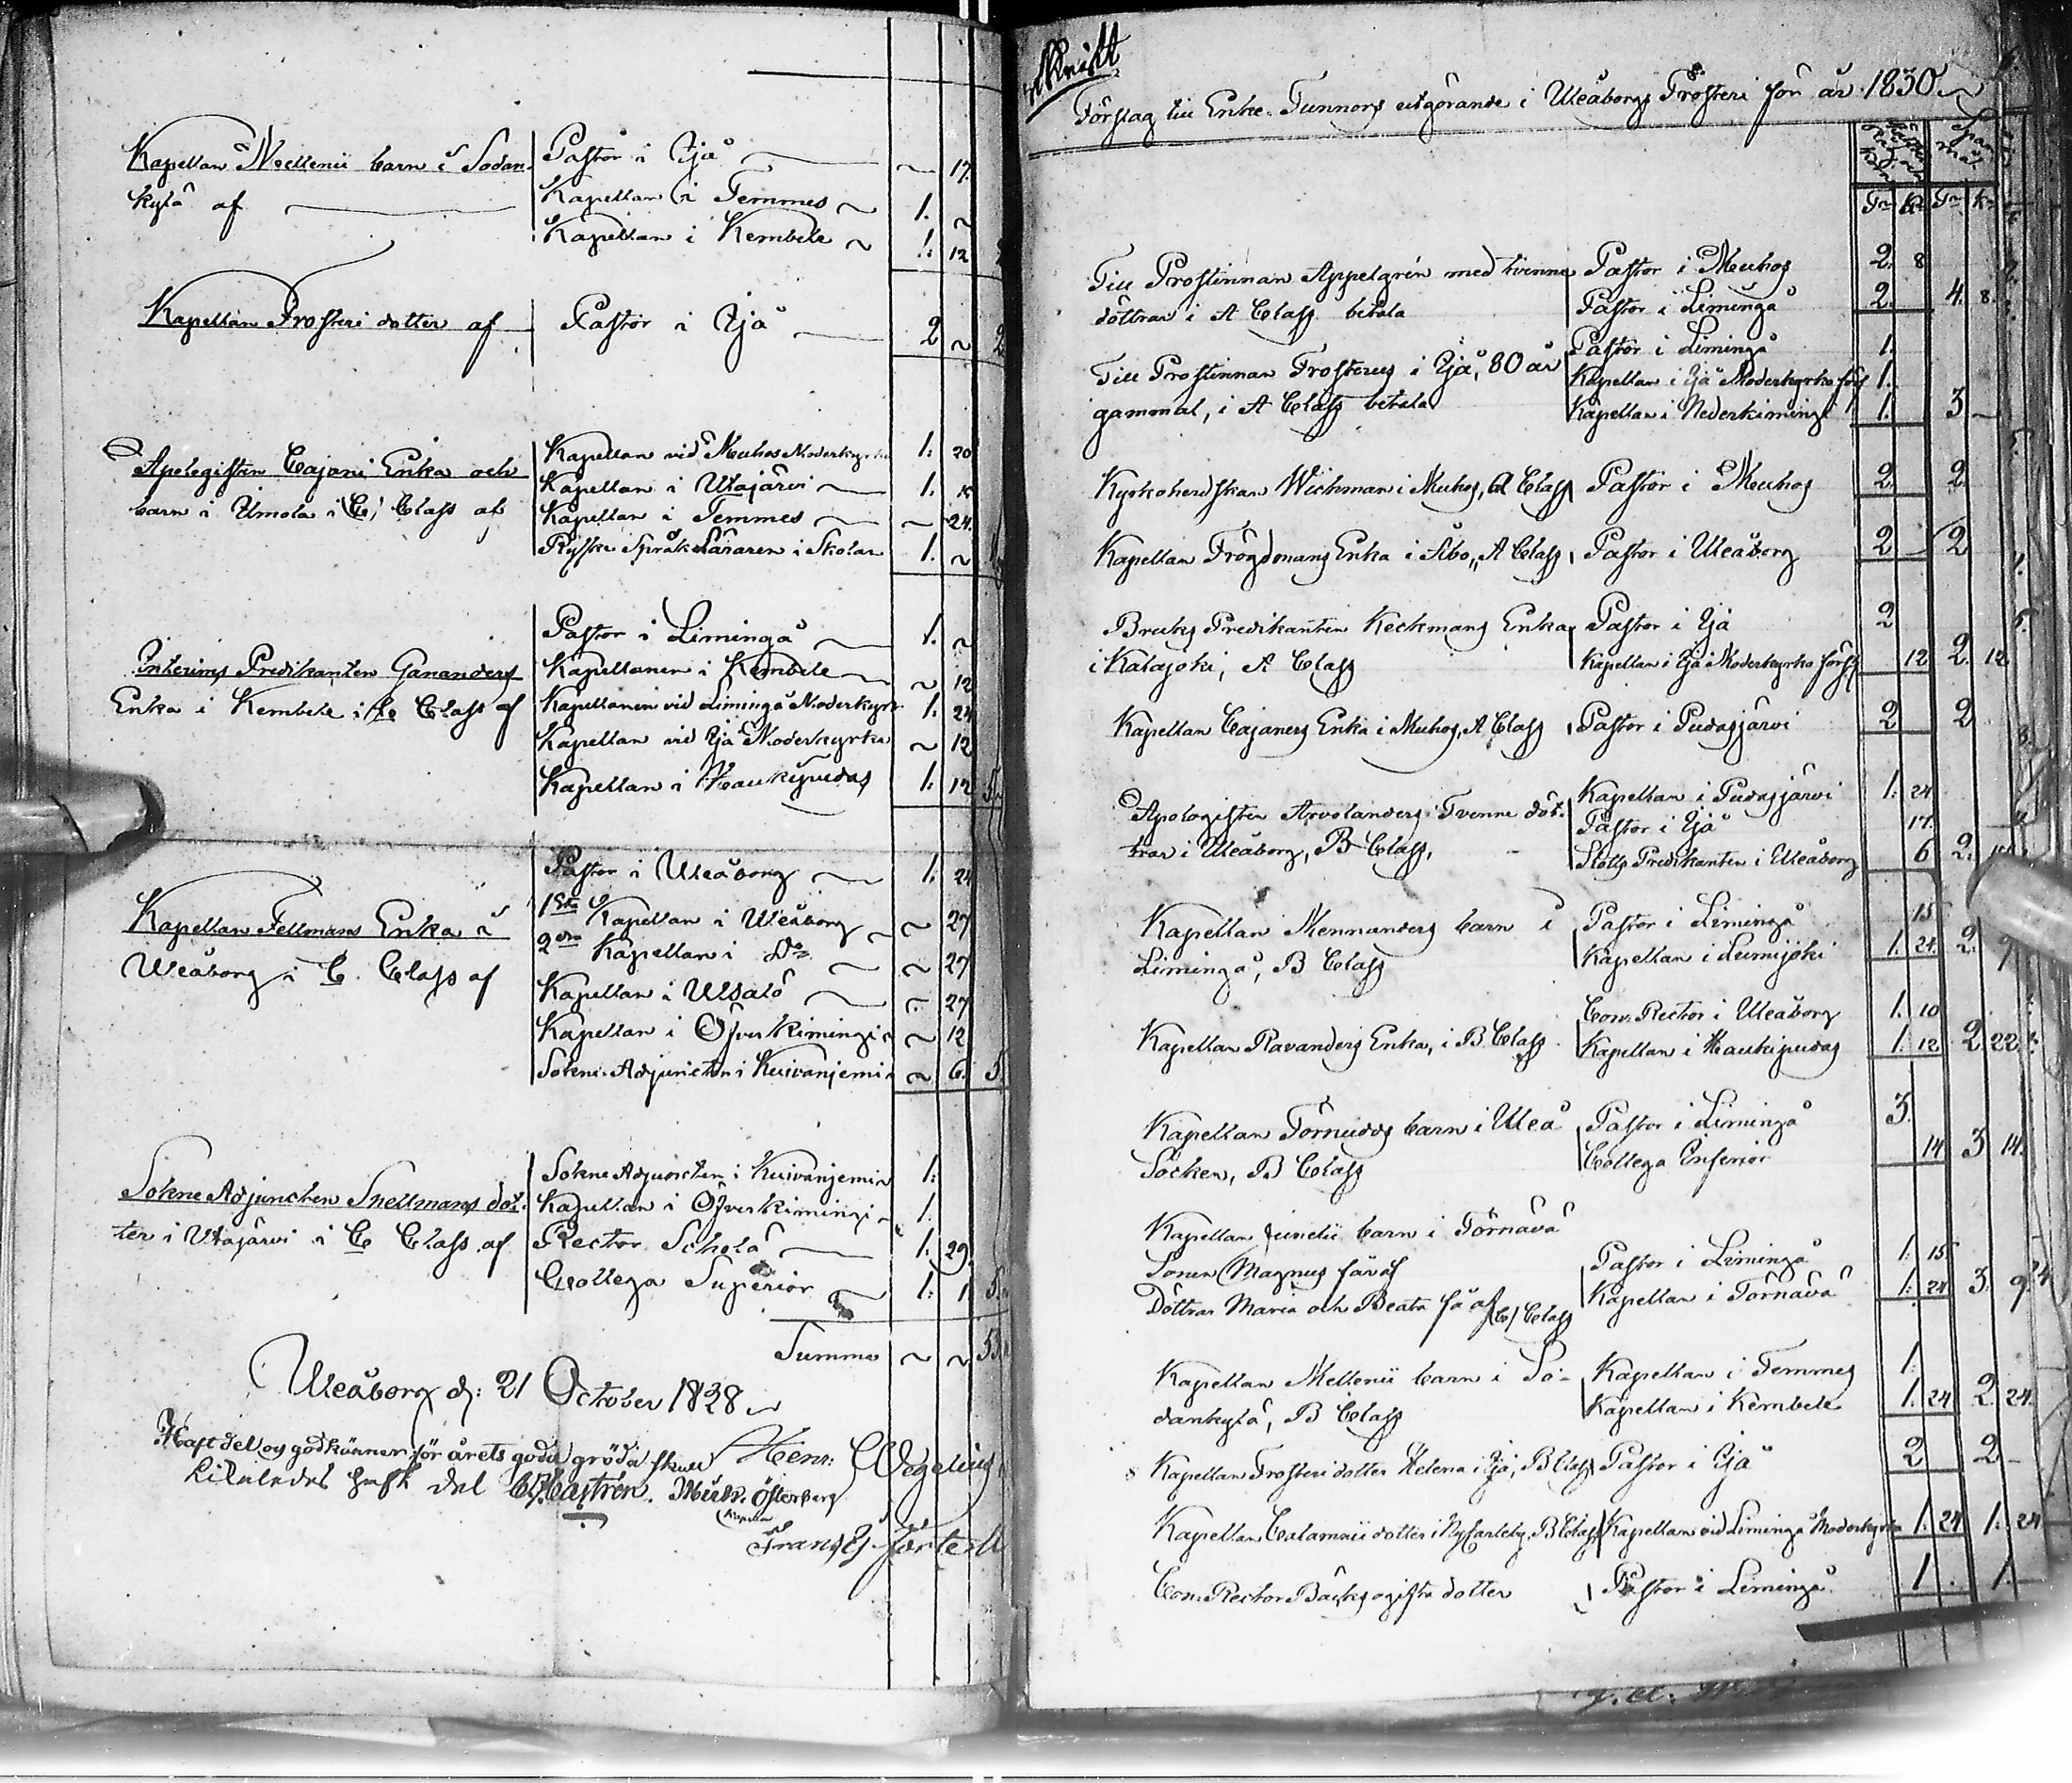 Kapellan Mellenii barn i Sodan-
kylä af
Pastor i Ijå ~ 17.
Kapellan i Temmes ~ 1. ~
Kapellan i Kembele ~ 1: 12
Kapellan Frosteri dotter af
Pastor i Ijå 2 ~ 2
Apologisten Cajani Enka och
barn i Umola i C, Class af
Kapellan vid Muhos Moderkyrka 1: 20
Kapellan i Utajärvi 1. 15
Kapellan i Temmes ~ 24.
Ryska Språk Läraren i Skolan 1. ~
Interims Predikanten Gananders
Enka i Kembele i C Class af
Pastor i Limingå 1. ~
Kapellanen i Kembele ~ 12
Kapellanen vid Limingå Moderkyrk 1: 24
Kapellan vid Ijå Moderkyrka ~ 12
Kapellan i Haukipudas 1: 12 5.
Kapellan Fellmans Enka i
Uleåborg i C. Class af
Pastor i Uleåborg 1: 24
1sta Kapellan i Uleåborg ~ 27
2dra Kapellan i Do ~ 27
Kapellan i Ulsalo ~ 27
Kapellan i Öfverkimingi ~ 12
Sokne Adjuncten i Kuivanjemi ~ 6. 5.
Sokne Adjuncten Snellmans dot-
ter i Utajärvi i C Class af
Sokne Adjuncten i Kuivanjemi 1:
Kapellan i Öfverkimingi 1.
Rector Scholæ 1. 29.
Collega Superior 1: 1. 5.
Summa ~ ~ 53
Uleåborg d: 21 October 1828
Haft del, og godkänner för årets goda gröda skull Henr: Wegelius
Likaledes haft del C: Castrén. Mich. Österberg
Kapellan
Frans J.
Afskrift
Förslag till Enke-Tunnors utgörande i Uleåborgs Prosteri för år 1830
Spanmål
Tr. Kr. Tr. Kr.
Till Prostinnan Appelgrén med tvenne
döttrar i A Class betala
Pastor i Muhos 2. 8
Pastor i Limingå 2. 4. 8.
Till Prostinnan Frosterus i Ijå, 80 år
gammal, i A Class betala
Pastor i Limingå 1.
Kapellan i Ijå Moderkyrko förs 1.
Kapellan i Nederkimingi 1. 3 -
Kyrkoherdskan Wichman i Muhos, A Class Pastor i Muhos 2. 2.
Kapellan Frögdmans Enka i Sibo, A Class, Pastor i Uleåborg 2 - 2
Bruks Predikanten Keckmans Enka
i Kalajoki, A Class
Pastor i Ijå 2
Kapellan i Ijå Moderkyrko förs 12 2. 12
Kapellan Cajaners Enka i Muhos, A Class Pastor i Pudasjärvi 2 2
Apologisten Arvolanders Tvenne döt-
trar i Uleåborg, B Class,
Kapellan i Pudasjärvi 1. 24
Pastor i Ijå 17.
Slotts Predikanten i Uleåborg 6 2.
Kapellan Mennanders barn i
Limingå, B Class
Pastor i Limingå 15
Kapellan i Lumijoki 1. 24. 2. 9
Kapellan Ravanders Enka, i B. Class
Con. Rector i Uleåborg 1. 10
Kapellan i Haukipudas 1. 12 2. 22.
Kapellan Törnudds barn i Uleå
Socken, B Class
Pastor i Limingå 3.
Collega Inferior 14 3 14.
Kapellan Junelii barn i Törnävä
Sonen Magnus får af
Döttrar Maria och Beata få af C/ Class
Pastor i Limingå 1: 15
Kapellan i Törnävä 1: 24 3. 9.
Kapellan Mellenii barn i So-
dankylä, B Class
Kapellan i Temmes 1.
Kapellan i Kembele 1. 24 2. 24.
Kapellan Frosteri dotter Helena i Ijå, B Class Pastor i Ijå 2 2 -
Kapellan Calamnii dotter i Ny Carleby, B Class Kapellan vid Limingå Moderkyrka 1. 24 1. 24
Con. Rector Bäcks ogifta dotter Pastor i Limingå 1 . 1.